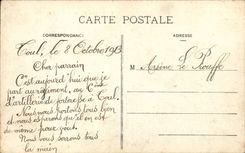 CARTE POSTALE
CORRESPONDANCE
ADRESSE
Toul, le 8 Octobre 1913
Cher parrain
C'est aujourd'hui que je
part au régiment, au 6e
d'artillerie de forteresse à Toul.
Nous nous portons tous bien
et nous espérons qu'il en est
de même pour vous.
Nous vous serrons tous
la main
M. Arsène Le Rouffe